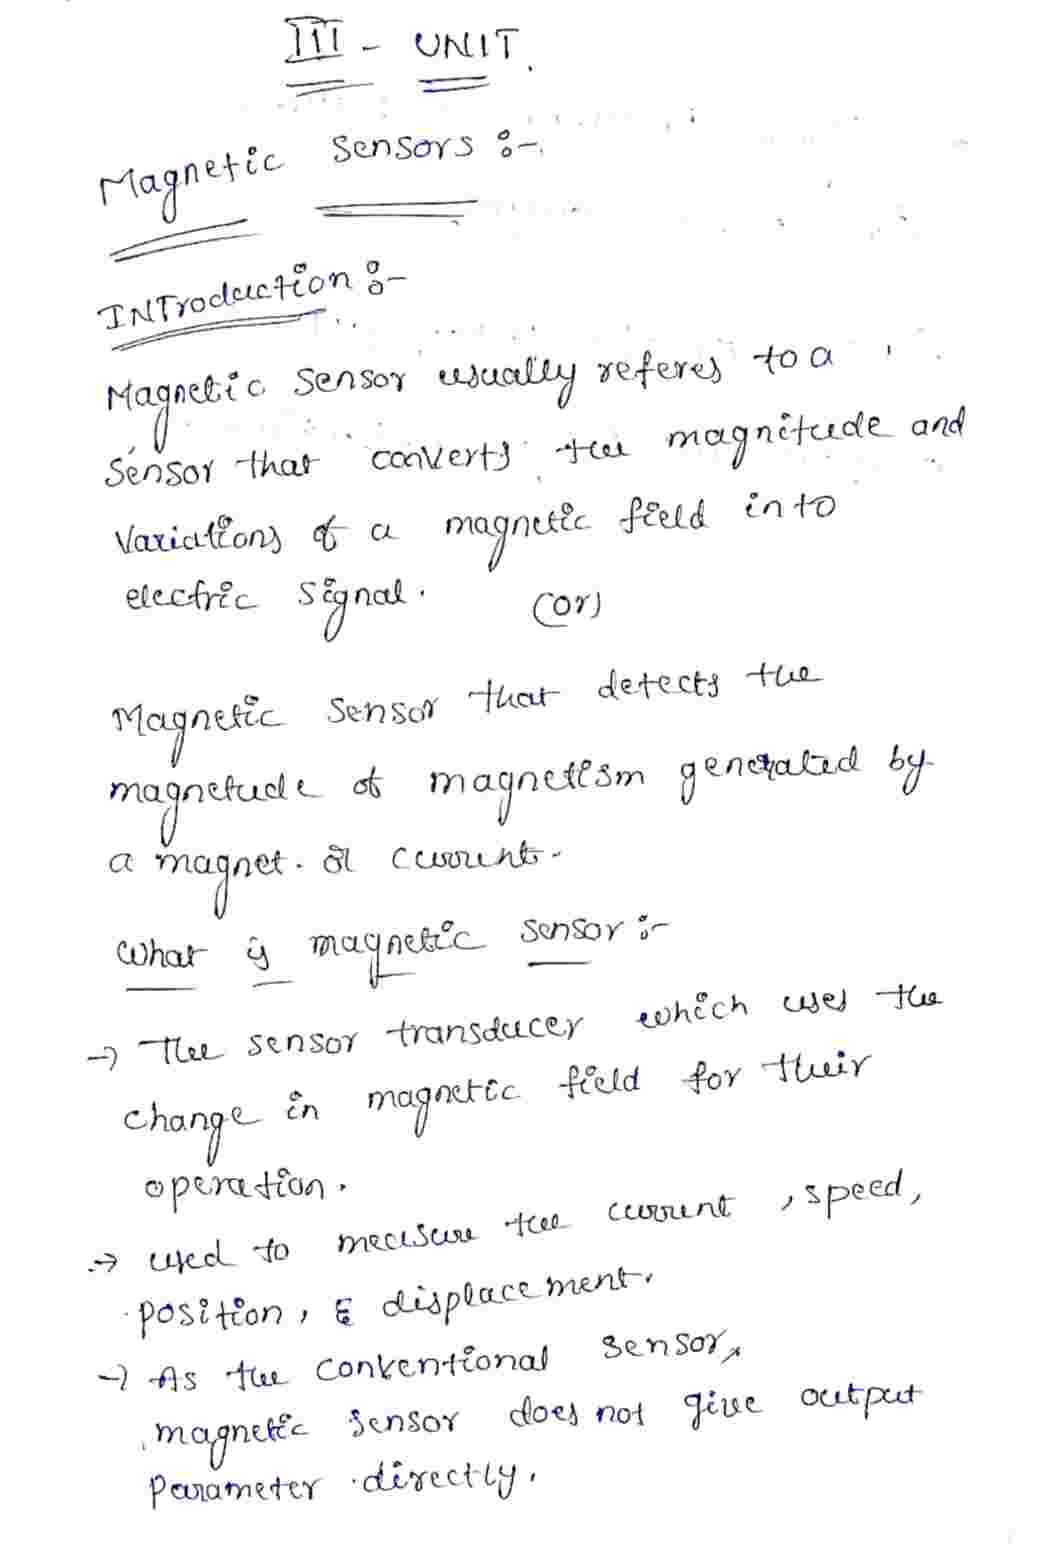 III - UNIT.
Magnetic Sensors :-
INTroduction :-
Magnetic Sensor usually referes to a
Sensor that converts the magnitude and
Variations of a magnetic field into
electric signal. (or)
Magnetic Sensor that detects the
magnetude of magnetism generated by
a magnet. or current.
What is magnetic sensor :-
→ The sensor transducer which uses the
change in magnetic field for their
operation.
→ used to measure the current, speed,
position, & displacement.
→ As the conventional sensor,
magnetic sensor does not give output
Parameter directly.